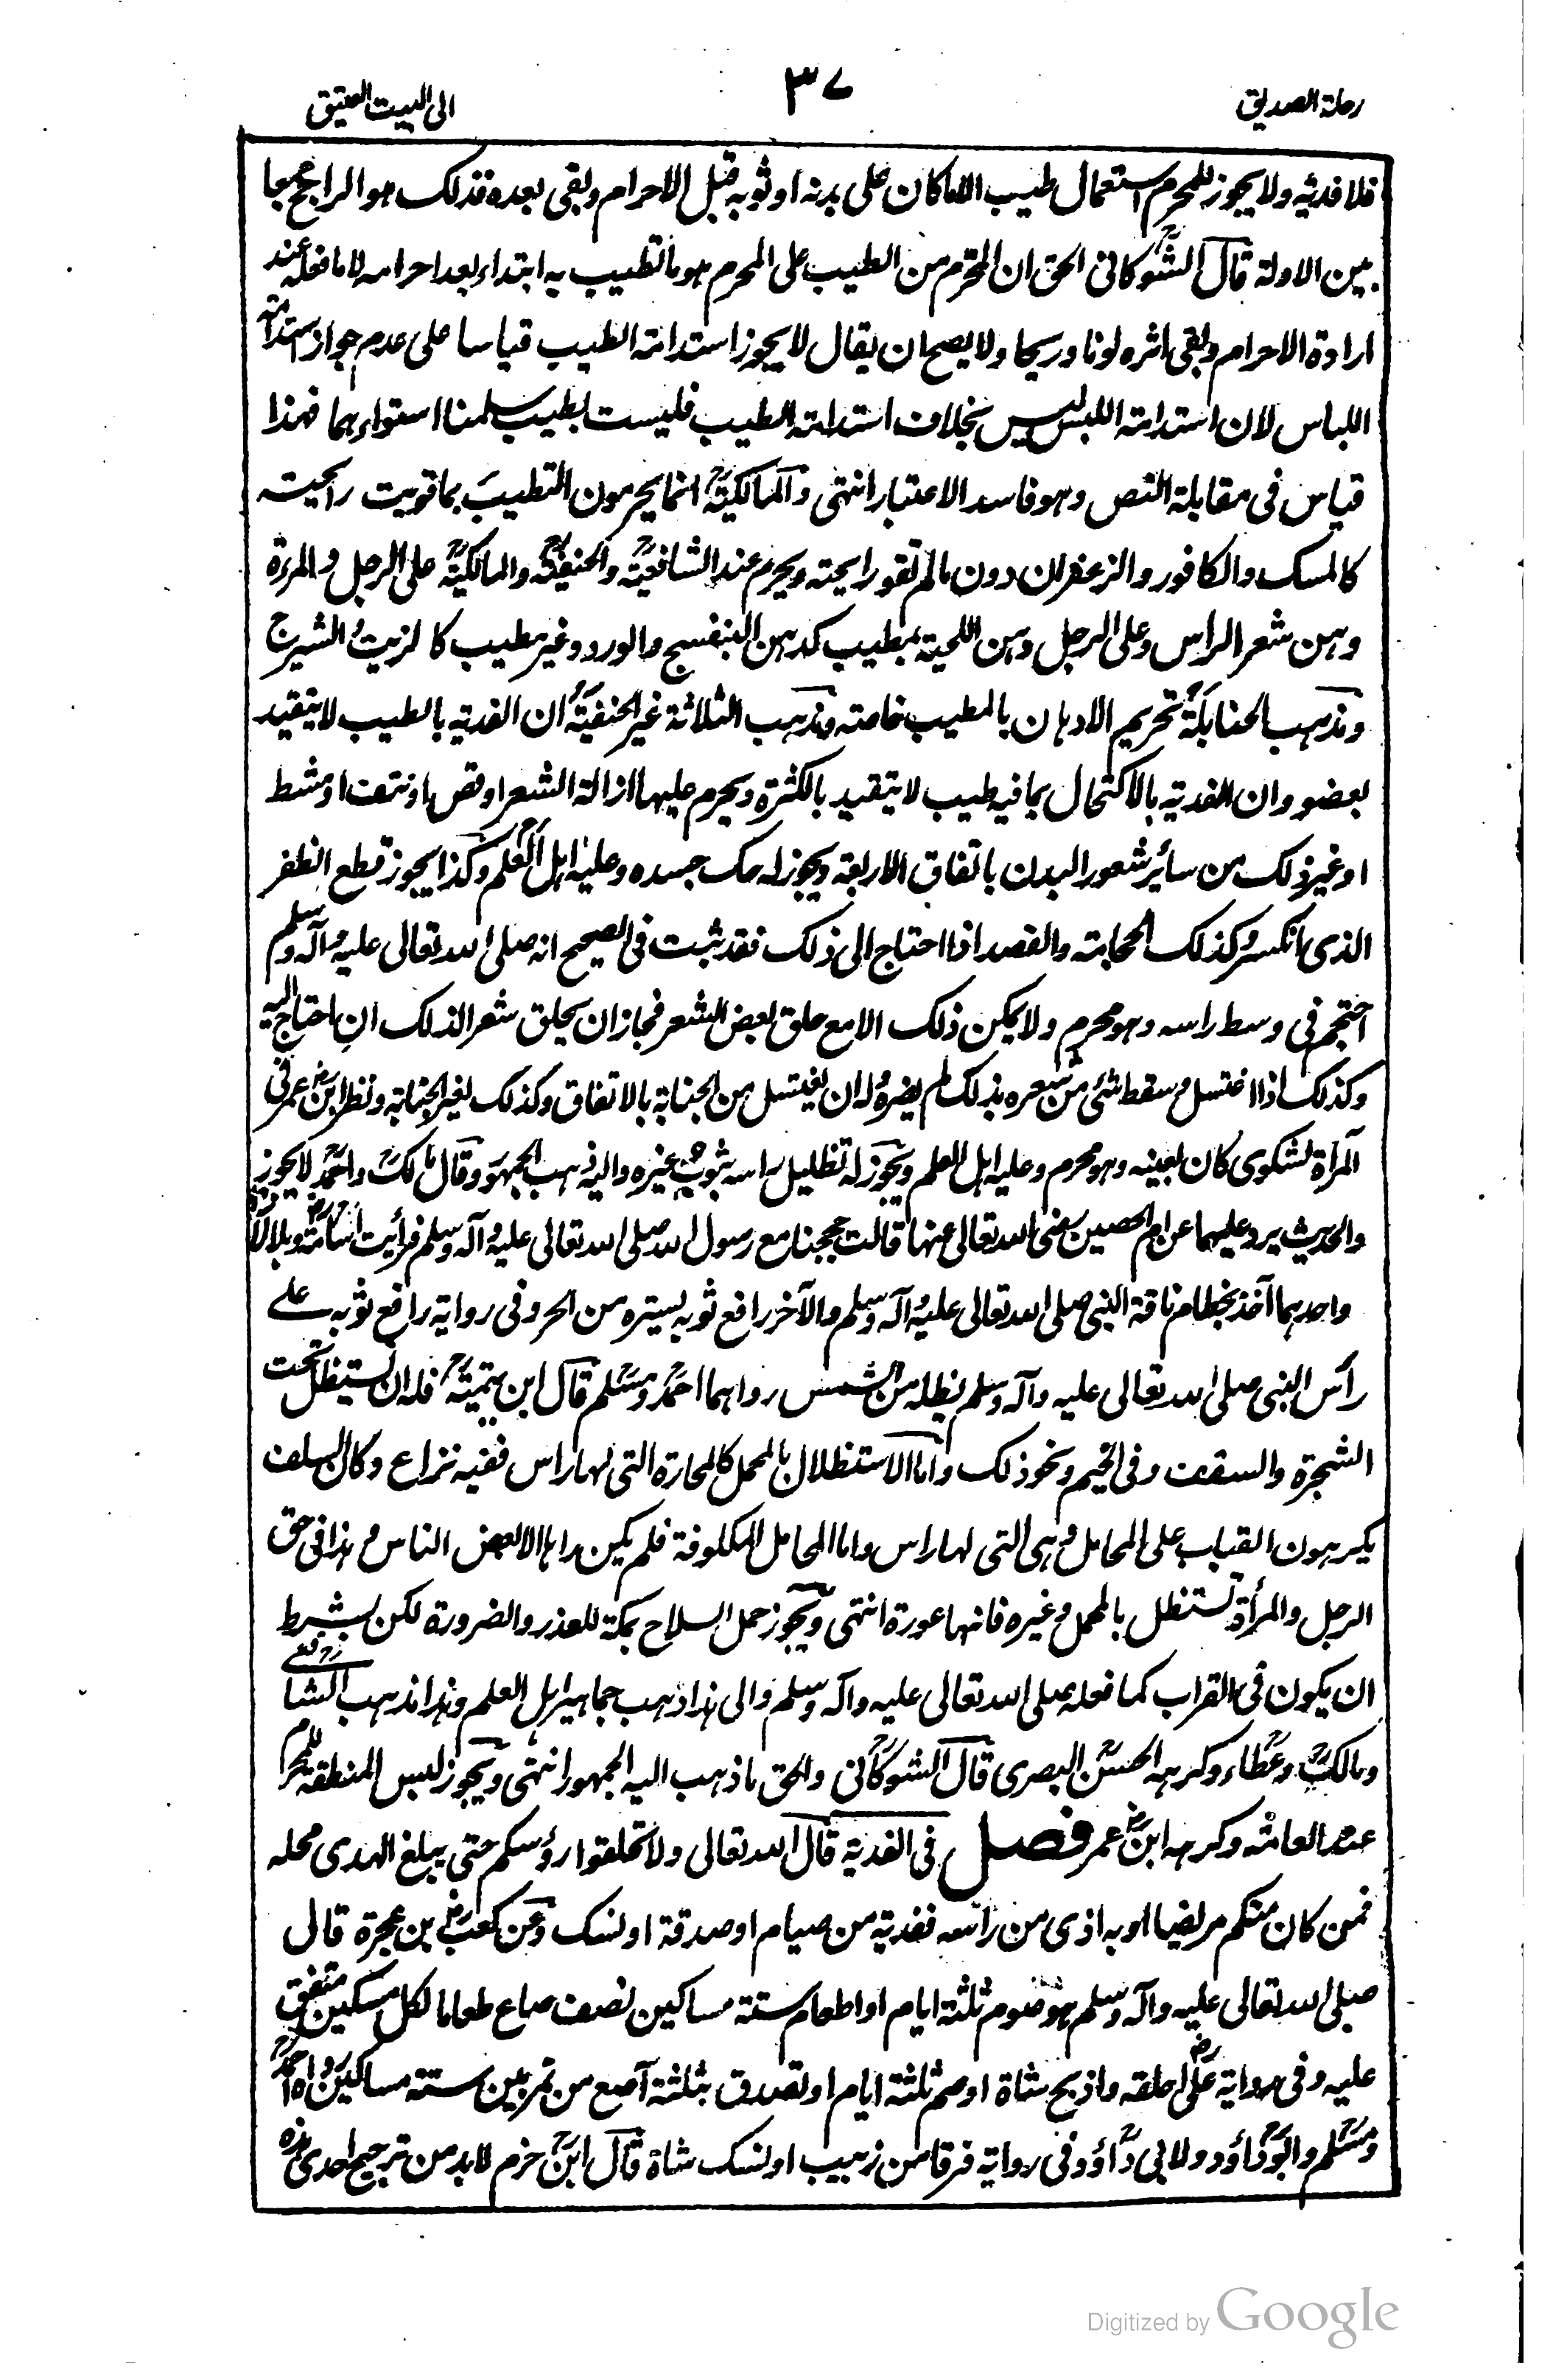 رحلة الصديق
٣٧
الى البيت العتيق
فلا فدية ولا يجوز للمحرم استعمال طيب الا ما كان على بدنه او ثوبه قبل الاحرام وبقى بعده فذلك هو الراجح جمعا
بين الادلة قال الشوكانى الحق ان المحرم من الطيب على المحرم هو ما تطيب به ابتداء بعد احرامه لا ما فعله عند
ارادة الاحرام وبقى اثره لونا وريحا ولا يصح ان يقال لا يجوز استدامة الطيب قياسا على عدم جواز استدامة
اللباس لان استدامة اللبس لبس بخلاف استدامة الطيب فليست بطيب سلمنا استواءهما فهذا
قياس فى مقابلة النص وهو فاسد الاعتبار انتهى والمالكية انما يحرمون التطيب بما قويت رائحيته
كالمسك والكافور والزعفران دون ما لم تقو رايحته ويحرم عند الشافعية والحنفية والمالكية على الرجل والمرءة
دهن شعر الراس وعلى الرجل دهن اللحية بمطيب كدهن البنفسج والورد وغير مطيب كالزيت والشيرج
ومذهب الحنابلة تحريم الادهان بالمطيب خاصة ومذهب الثلاثة غير الحنفية ان الفدية بالطيب لا يتقيد
بعضو وان الفدية بالاكتحال بما فيه طيب لا يتقيد بالكثرة ويحرم عليها ازالة الشعر او قصها او نتف او مشط
او غير ذلك من سائر شعور البدن باتفاق الاربعة ويجوز له حك جسده وعليه اهل العلم وكذا يجوز قطع الظفر
الذى انكسر وكذلك الحجامة والفصد اذا احتاج الى ذلك فقد ثبت فى الصحيح انه صلى الله تعالى عليه وآله وسلم
احتجم فى وسط راسه وهو محرم ولا يمكن ذلك الا مع حلق بعض الشعر فجاز ان يحلق شعرا لذلك ان احتاج اليه
وكذلك اذا اغتسل وسقط شئ من شعره بذلك لم يضره وله ان يغتسل من الجنابة بالاتفاق وكذلك لغير الجنابة ونظر ابن عمر فى
المرآة لشكوى كان بعينه وهو محرم وعليه اهل العلم ويجوز له تظليل راسه بثوب وغيره واليه ذهب الجمهور وقال مالك واحمد لا يجوز
والحديث يرد عليهما عن ام الحصين رضى الله تعالى عنها قالت حججنا مع رسول الله صلى الله تعالى عليه وآله وسلم فرأيت اسامة وبلالا
واحدهما آخذ بخطام ناقة النبى صلى الله تعالى عليه وآله وسلم والآخر رافع ثوبه يستره من الحر وفى رواية رافع ثوبه على
رأس النبى صلى الله تعالى عليه وآله وسلم يظله من الشمس رواهما احمد ومسلم قال ابن تيمية فله ان يستظل تحت
الشجرة والسقف وفى الخيم ونحو ذلك واما الاستظلال بالمحمل كالمحارة التى لها راس ففيه نزاع وكان السلف
يكرهون القباب على المحامل وهى التى لها راس واما المحامل المكشوفة فلم يكرهها الا بعض الناس وهذا فى حق
الرجل والمرأة تستظل بالمحمل وغيره فانها عورة انتهى ويجوز حمل السلاح بمكة للعذر والضرورة لكن بشرط
ان يكون فى القراب كما فعله صلى الله تعالى عليه وآله وسلم والى هذا ذهب جماهير اهل العلم وهذا مذهب الشافعى
ومالك وعطاء وكرهه الحسن البصرى قال الشوكانى والحق ما ذهب اليه الجمهور انتهى ويجوز لبس المنطقة للمحرم
عند العامة وكرهه ابن عمر فصل فى الفدية قال الله تعالى ولا تحلقوا رؤسكم حتى يبلغ الهدى محله
فمن كان منكم مريضا او به اذى من راسه ففدية من صيام او صدقة او نسك وعن كعب بن عجرة قال
صلى الله تعالى عليه وآله وسلم هو صوم ثلثة ايام او اطعام ستة مساكين نصف صاع طعاما لكل مسكين متفق
عليه وفى رواية على احلقه واذبح شاة او صم ثلثة ايام او تصدق بثلثة آصع من تمر بين ستة مساكين رواه احمد
ومسلم وابو داؤد ولابى داؤد وفى رواية فرقا من زبيب او نسك شاة قال ابن حزم لا بد من ترجيح احدى هذه
Digitized by Google